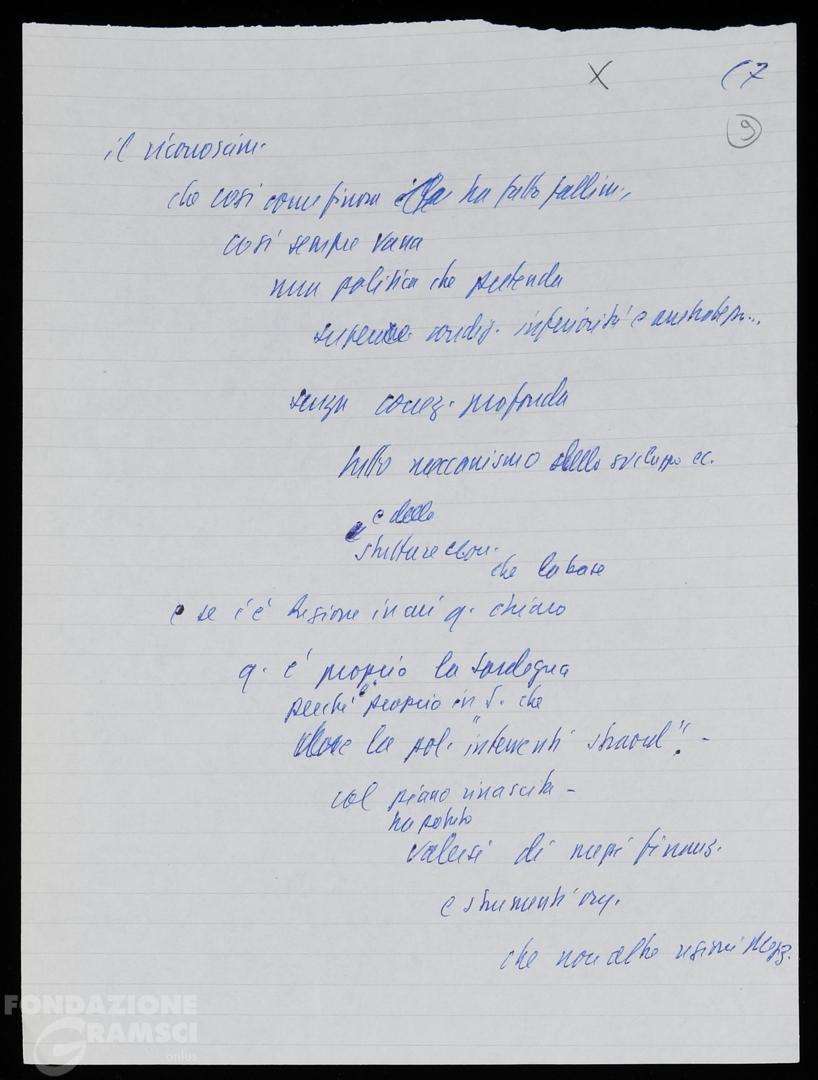 X
17
9
il riconoscim.
che così come finora ha fatto fallim.,
così sempre vana
una politica che pretenda
superare condiz. inferiorità e
senza concez. profonda
tutto meccanismo dello sviluppo ec.
e delle
strutture econ.
che la base
e se c'è Regione in cui q. chiaro
q. è proprio la Sardegna
perché è proprio in S. che
la pol. "interventi straord". -
col piano rinascita -
ha potuto
valersi di mezzi finanz.
e strumenti org.
che non altre regioni Mezz.
FONDAZIONE
GRAMSCI
onlus